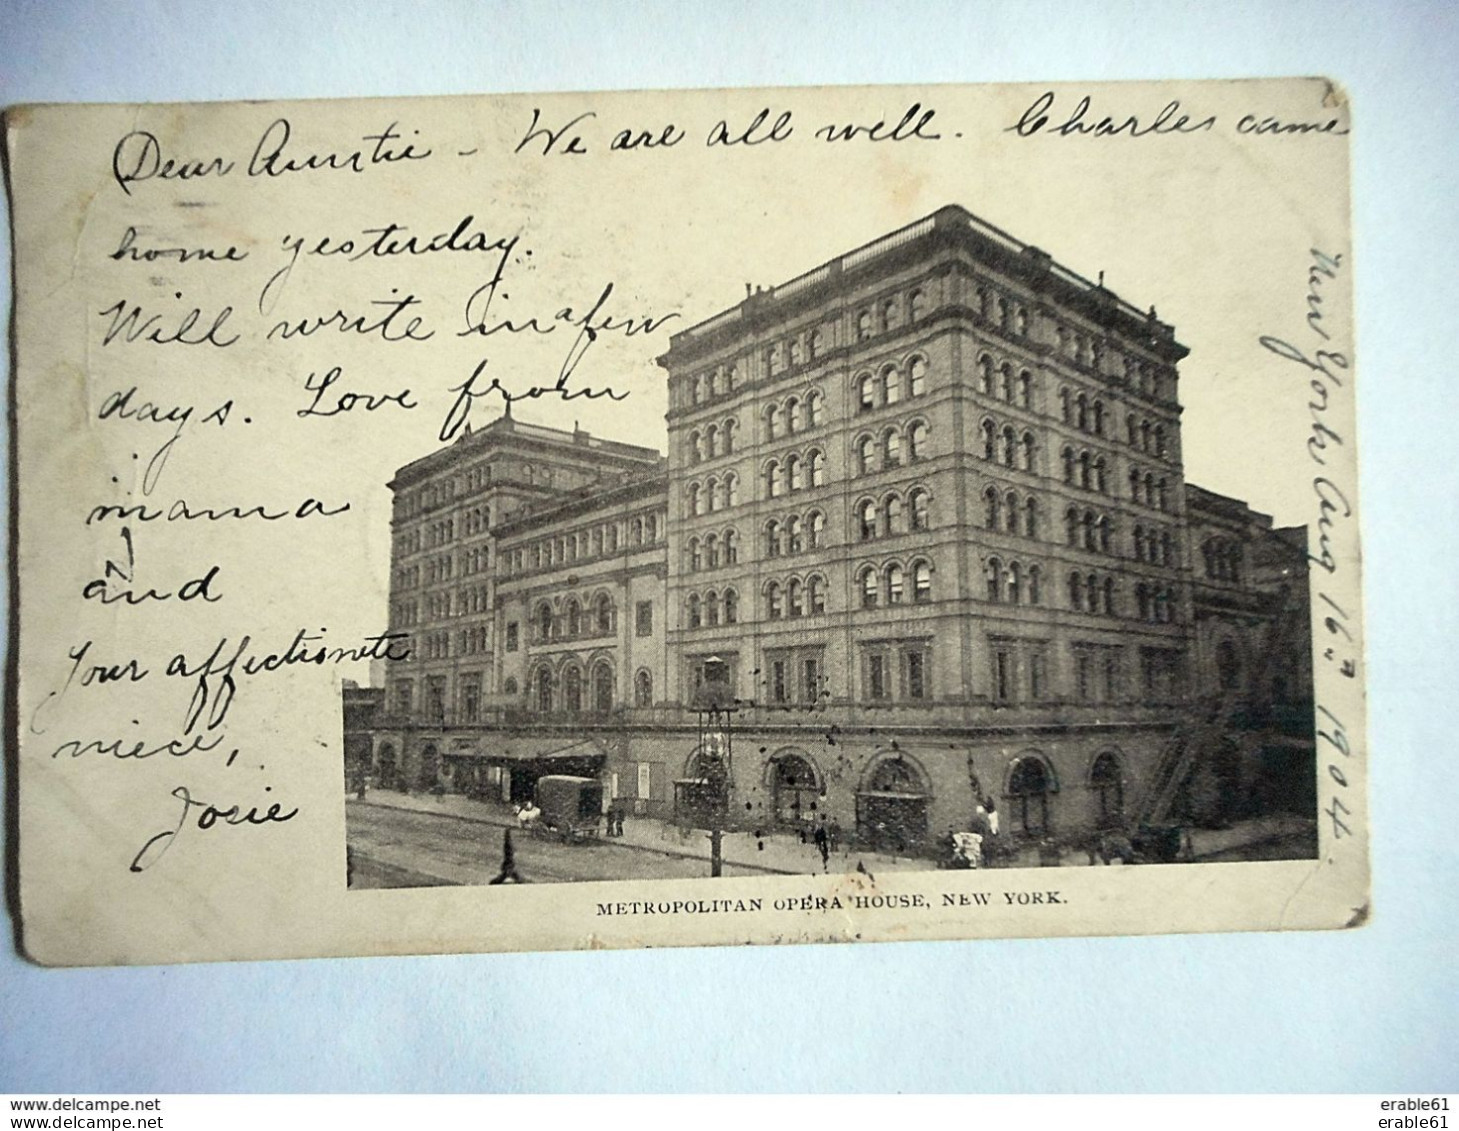 Dear Auntie - We are all well. Charles came
home yesterday.
Will write in a few
days. Love from
mama
and
Your affectionate
niece,
Josie
New York Aug 16th 1904.
METROPOLITAN OPERA HOUSE, NEW YORK.
www.delcampe.net erable61
www.delcampe.net erable61